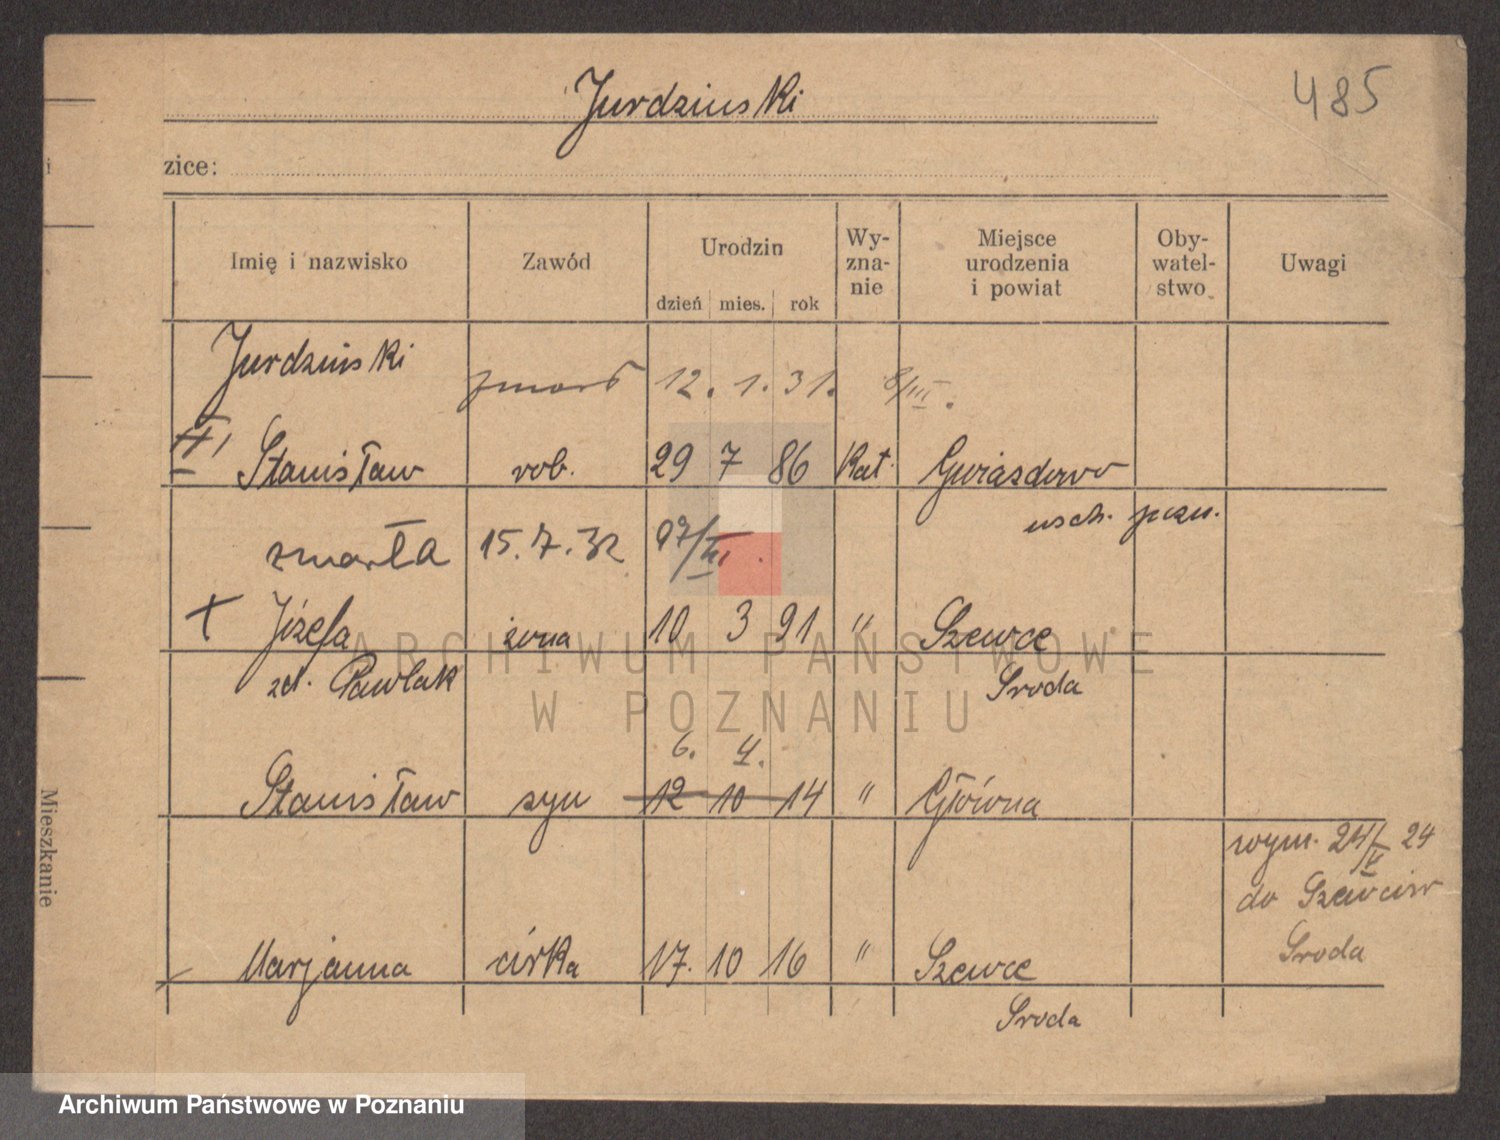 485
Jurdzinski
i
zice:
Imię i nazwisko Zawód Urodzin Wy-zna-nie Miejsce urodzenia i powiat Oby-watel-stwo Uwagi
dzień mies. rok
Jurdzinski
zmarł 12. 1. 31. 8/III.
Stanisław rob. 29 7 86 Kat. Gwiazdowo
wsch. pozn.
zmarła 15.7.32
+ Józefa żona 10 3 91 " Szewce
zd. Pawlak Sroda
6. 4.
Stanisław syn 12 10 14 " Główna
wym. 24/V 24
do
Sroda
Marjanna córka 17. 10 16 " Szewce
Sroda
Mieszkanie
ARCHIWUM PAŃSTWOWE
W POZNANIU
Archiwum Państwowe w Poznaniu